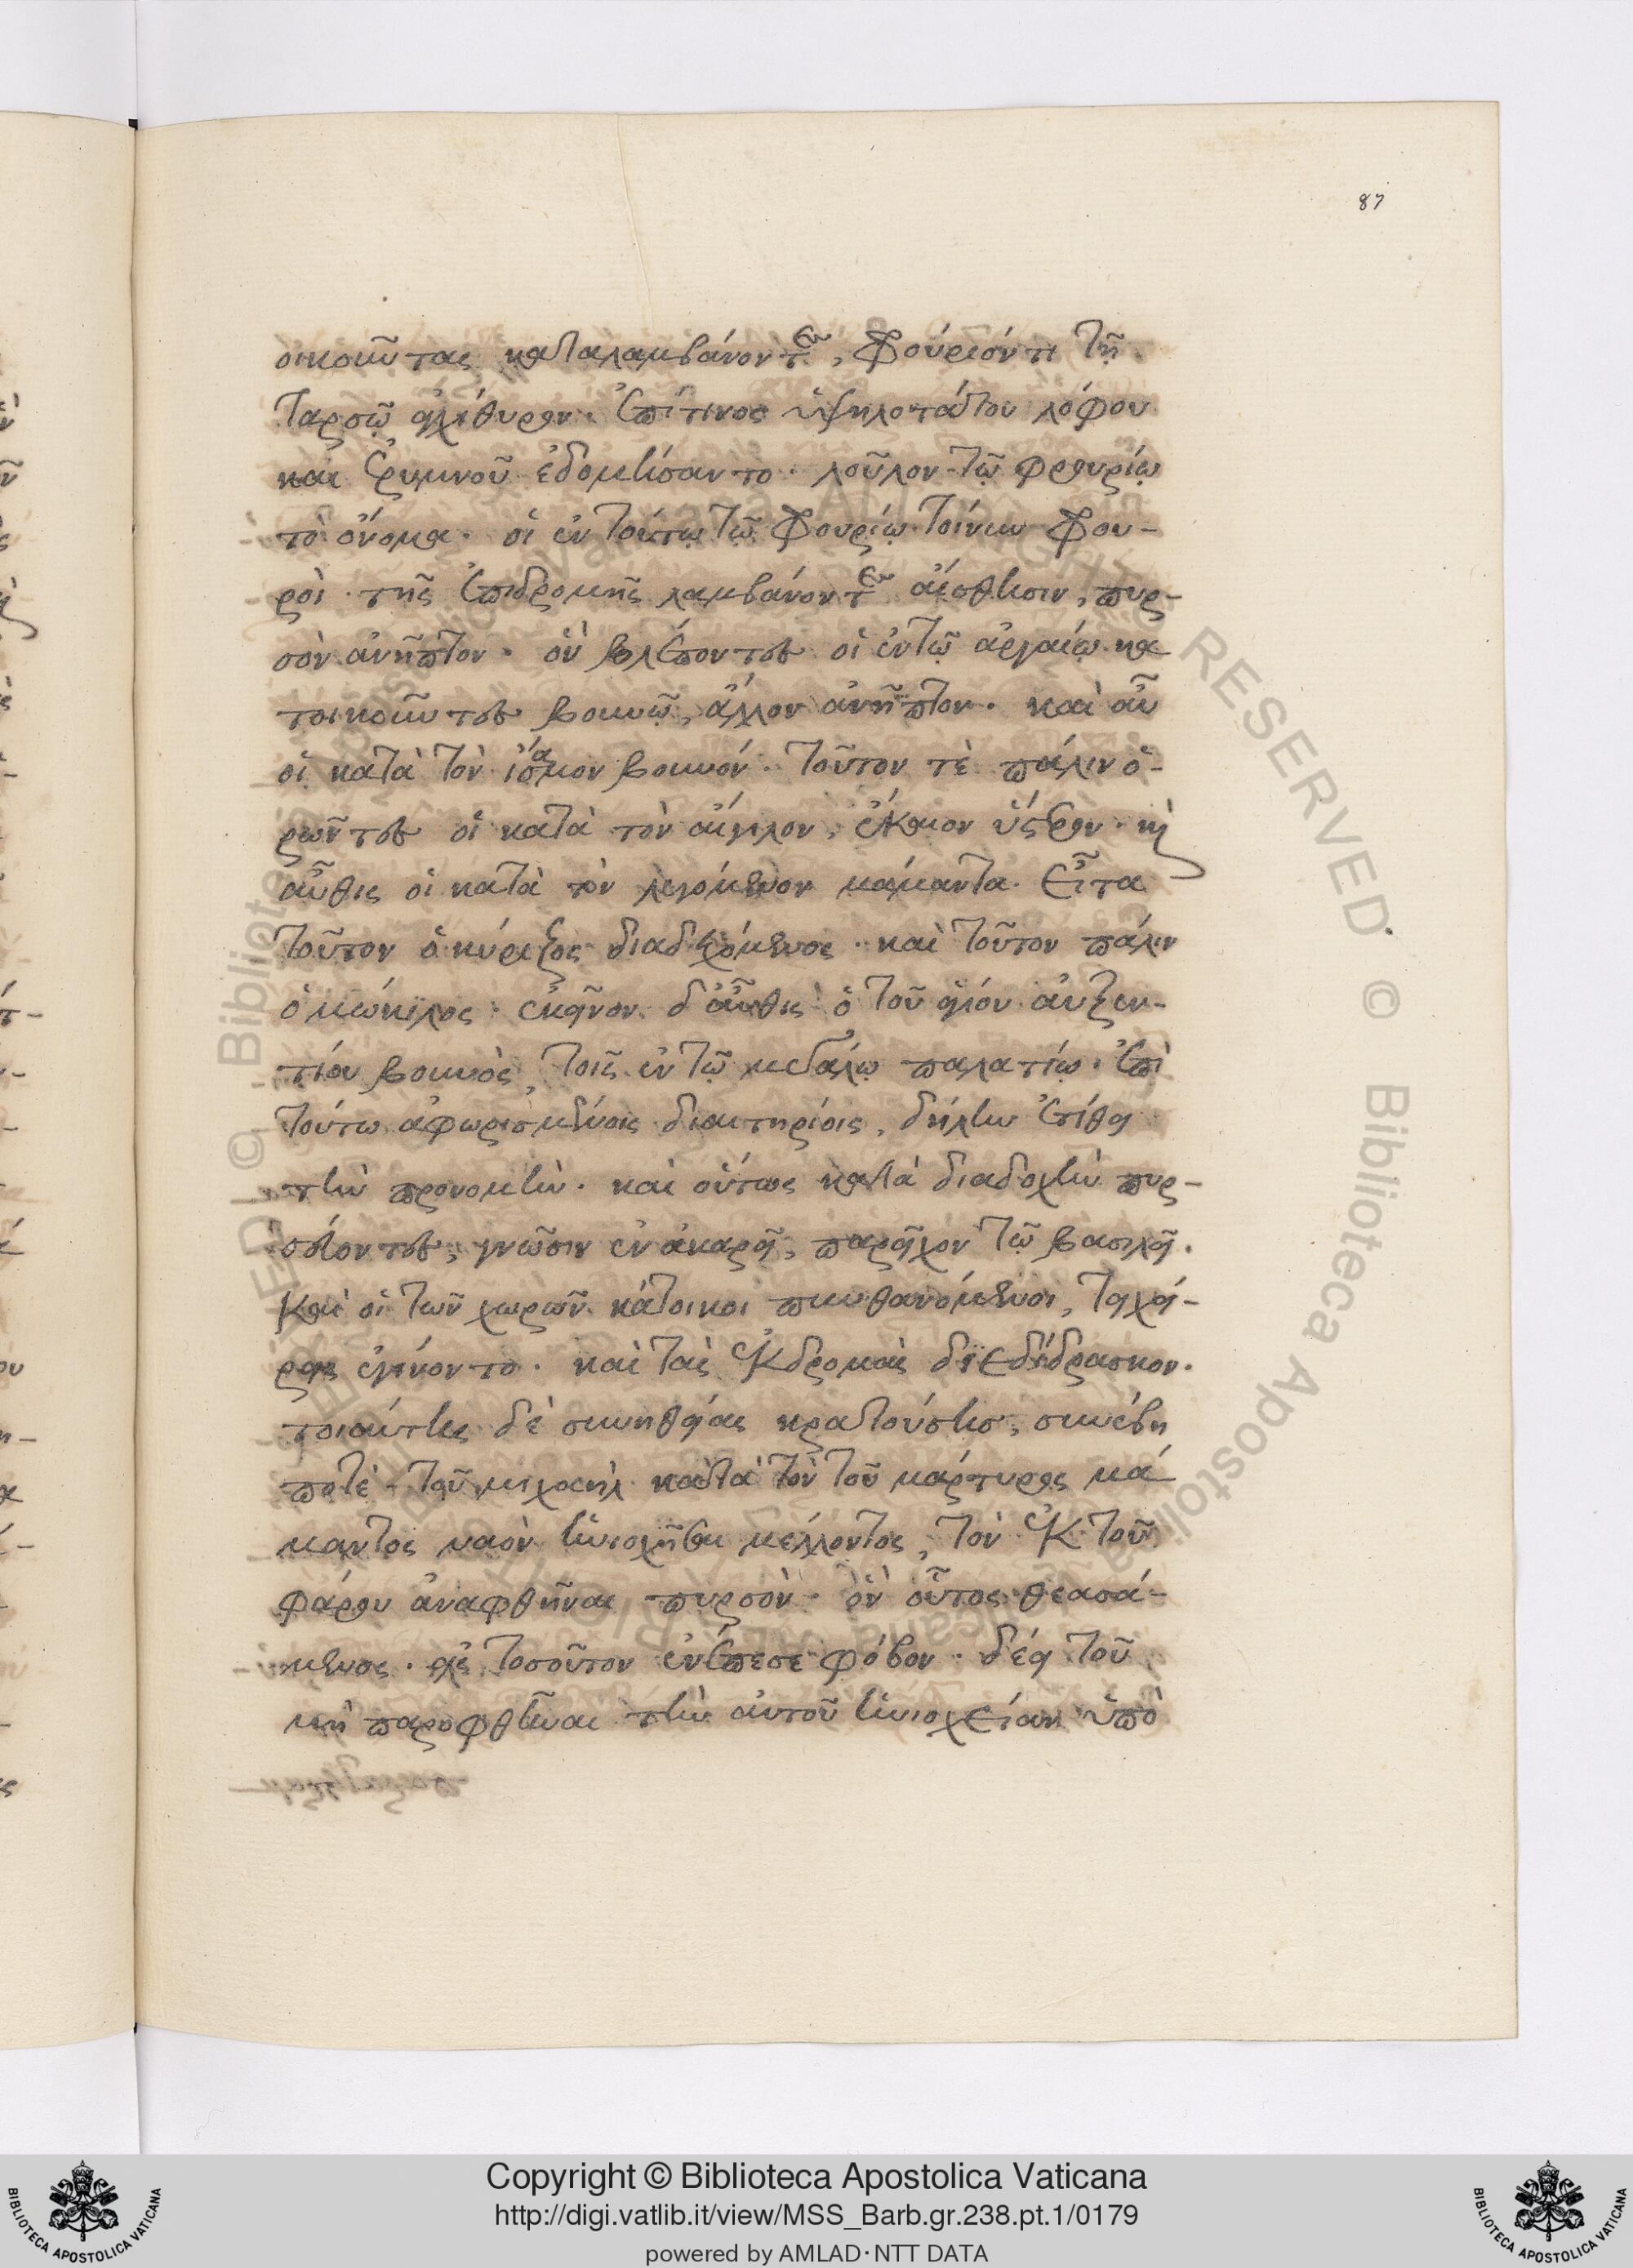 87
οἰκοῦντας καταλαμβάνοντες, φρούριόν τι τῇ
Ταρσῷ ἀγχίθυρον. ἐπί τινος ὑψηλοτάτου λόφου
καὶ ἐρυμνοῦ ἐδομήσαντο. λοῦλον τῷ φρουρίῳ
τὸ ὄνομα. οἱ ἐν τούτῳ τῷ φρουρίῳ τοίνυν φρου-
ροὶ. τῆς ἐπιδρομῆς λαμβάνοντες αἴσθησιν, πυρ-
σὸν ἀνῆπτον. ὃν βλέποντες οἱ ἐν τῷ ἀργαίῳ κα
τοικοῦντες βουνῷ, ἄλλον ἀνῆπτον. καὶ αὖ
οἱ κατὰ τὸν ἴσαμον βουνόν. τοῦτον τὲ πάλιν ὁ-
ρῶντες οἱ κατὰ τὸν αἴγιλον, ἔκαιον ὕστερον. καὶ
αὖθις οἱ κατὰ τὸν λεγόμενον μάμαντα. εἶτα
τοῦτον ὁ κύριζος διαδεχόμενος. καὶ τοῦτον πάλιν
ὁ μώκιλος. ἐκεῖνον δ' αὖθις ὁ τοῦ ἁγίου αὐξεν-
τίου βουνὸς, τοῖς ἐν τῷ μεγάλῳ παλατίῳ. ἐπὶ
τούτω ἀφωρισμένοις διαιτηρίοις, δήλην ἐτίθει
τὴν προνομὴν. καὶ οὕτως κατὰ διαδοχὴν πυρ-
σεύοντες, γνῶσιν ἐν ἀκαρεῖ, παρεῖχον τῷ βασιλεῖ.
Καὶ οἱ τῶν χωρῶν κάτοικοι πυνθανόμενοι, τειχή-
ρεις ἐγίνοντο. καὶ τὰς ἐκδρομὰς διεδίδρασκον.
τοιαύτης δὲ συνηθείας κρατούσης, συνέβη
ποτὲ τοῦ μιχαὴλ κατὰ τὸν τοῦ μάρτυρος μά
μαντος ναὸν ἡνιοχῆσαι μέλλοντος, τὸν ἐκ τοῦ
φάρου ἀναφθῆναι πυρσὸν. ὃν οὗτος θεασά-
μενος. εἰς τοσοῦτον ἐνέπεσε φόβον. δέει τοῦ
μὴ παροφθῆναι τὴν αὐτοῦ ἡνιοχείαν ὑπὸ
Copyright © Biblioteca Apostolica Vaticana
http://digi.vatlib.it/view/MSS_Barb.gr.238.pt.1/0179
powered by AMLAD·NTT DATA